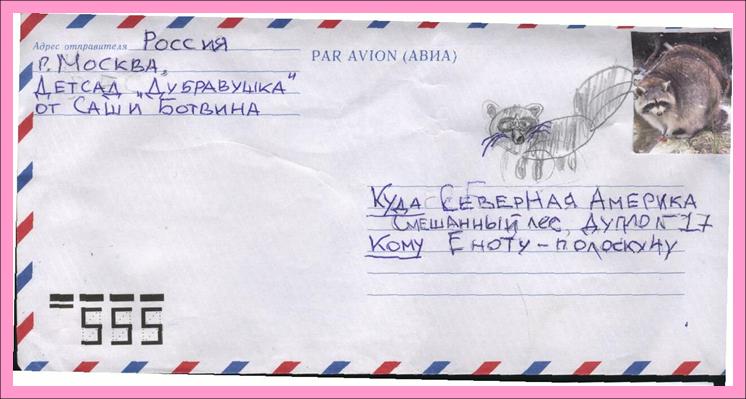 Адрес отправителя Россия
г. Москва,
Детсад „Дубравушка"
от Саши Ботвина
PAR AVION (АВИА)
Куда Северная Америка
Смешанный лес, дупло № 17
Кому Еноту-полоскуну
555